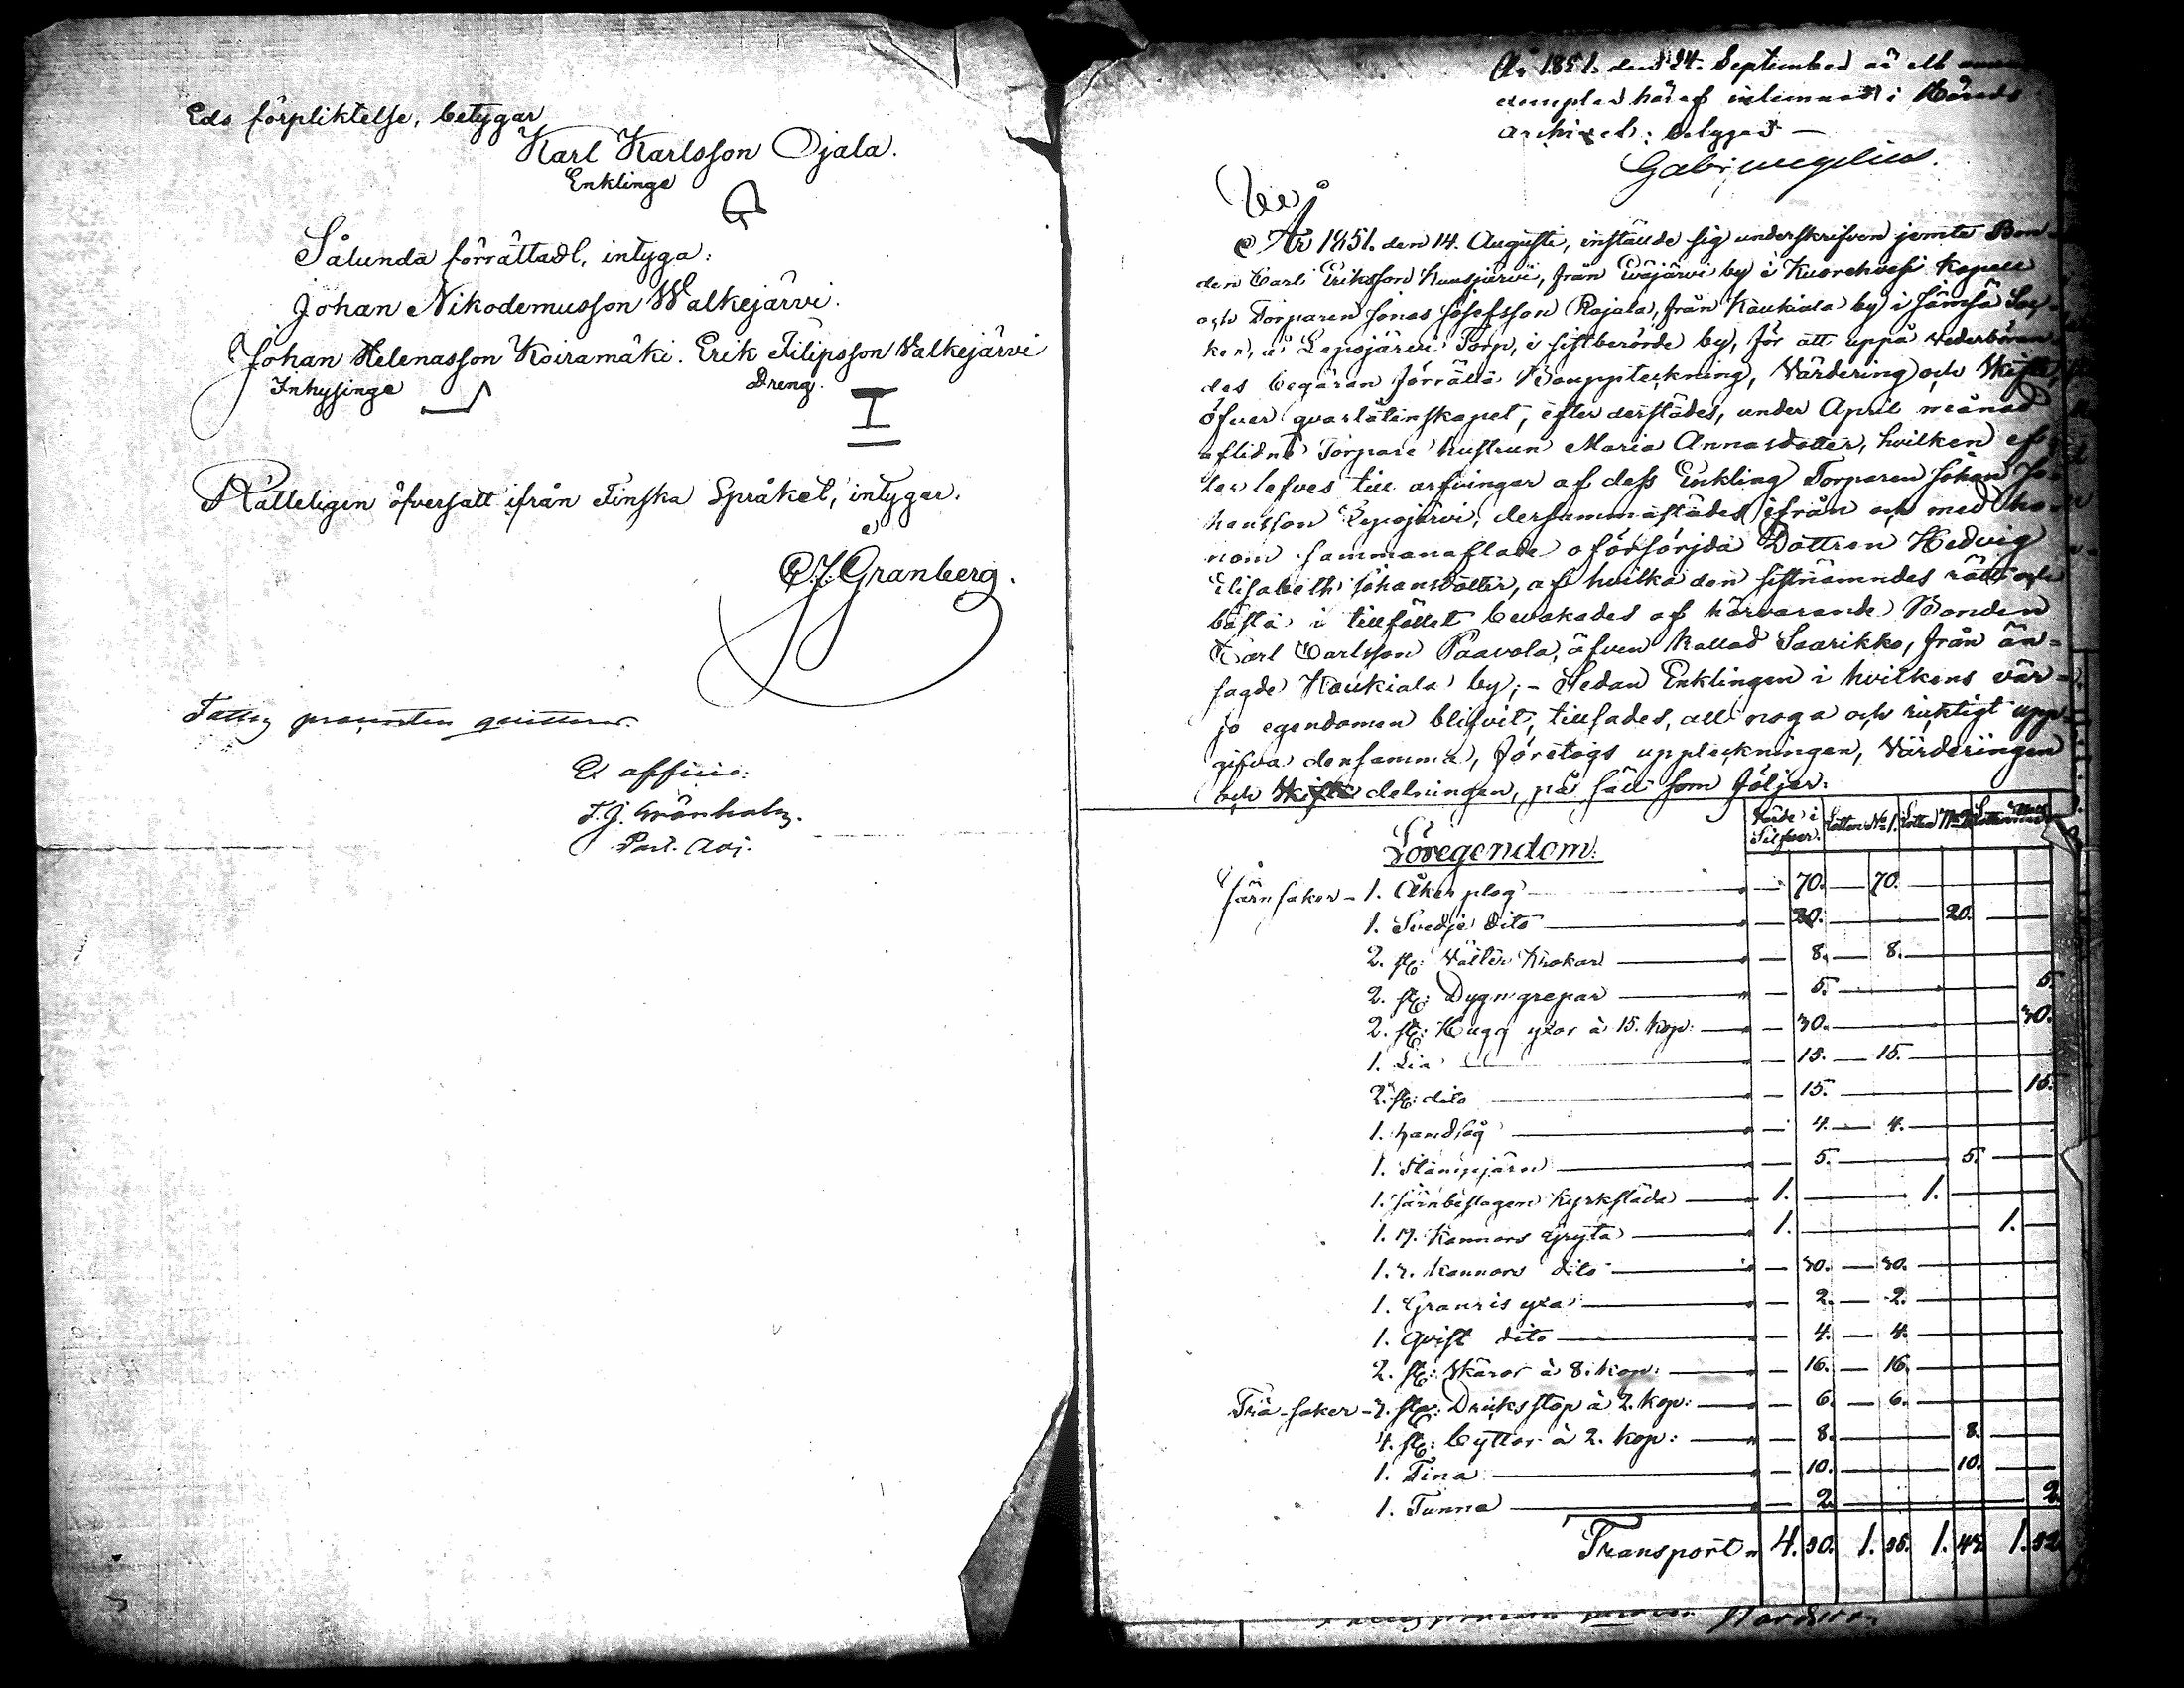 Eds förpliktelse, betygar
Karl Karlsson Ojala.
Enklinge
Sålunda förrättadt, intyga:
Johan Nikodemusson Walkejärvi.
Johan Helenasson Koiramäki. Erik Filipsson Walkejärvi
Inhysinge Dreng.
Rätteligen öfversatt ifrån Finska Språket, intygar.
Granberg.
Fattig procenten quitteras.
Ex officio:
F. J. Grönholm.
Past. Adj.
År 1851. den 24. September är ett
exemplar häraf inlemnadt i Härads
archivet; betygar —
År 1851. den 14. Augusti, instälde sig underskrifven jemte Bon-
den Carl Eriksson Kuusjärvi, från Eväjärvi by i Kuorehvesi Kapell
och Torparen Jonas Josefsson Rajala, från Kaukiala by i Jämsä Soc-
ken, å Leposjärvi Torp, i sistberörde by, för att uppå vederböran-
des begäran förrätta Bouppteckning, Värdering och Skifte,
öfver qvarlåtenskapet, efter derstädes, under April månad
aflidne Torpare hustrun Maria Annasdotter, hvilken ef-
ter lefves till arfvingar af dess Enkling Torparen Johan Jo-
hansson Lepojärvi, dersammastädes ifrån och med ho-
nom sammanaflade oförsörjda Dottren Hedvig
Elisabeth Johansdotter, af hvilka den sistnämndes rätt och
bästa i tillfället bevakades af närvarande Bonden
Karl Carlsson Paavola, äfven kallad Saarikko, från än-
sagde Kaukiala by; – Sedan Enklingen i hvilkens vär-
jo egendomen blifvit, tillsades, att noga och riktigt upp-
gifva densamma, företogs uppteckningen, Värderingen
och delningen, på sätt som följer:
Lösegendom: Värde i Silfver. Lotten No 1. Lotten No 2.
Järnsaker – 1. Åker plog — 70. — 70.
1. Svedje dito — 20. — 20.
2. st: Vältes Krokar — 8. — 8.
2. st: Dyngrepar — 5. — 5.
2. st: Hugg yxor à 15. kop: — 30. — 30.
1. Lia — 15. — 15.
2. st: dito — 15. — 15.
1. handsåg — 4. — 4.
1. Stämpjärn — 5. — 5.
1. Järnbeslagen Kyrksläda — 1. — 1.
1. 7. Kannors Gryta — 1. — 1.
1. 3. kannors dito — 30. — 30.
1. Granris yxa — 2. — 2.
1. Qvist dito — 4. — 4.
2. st: Skäror à 8. kop: — 16. — 16.
Trä-saker – 3. st: Dricksstop à 2. kop: — 6. — 6.
4. st: byttor à 2. kop: — 8. — 8.
1. Tina — 10. — 10.
1. Tunna — 2. — 2.
Transport 4. 50. 1. 55. 1. 43. 1. 52.